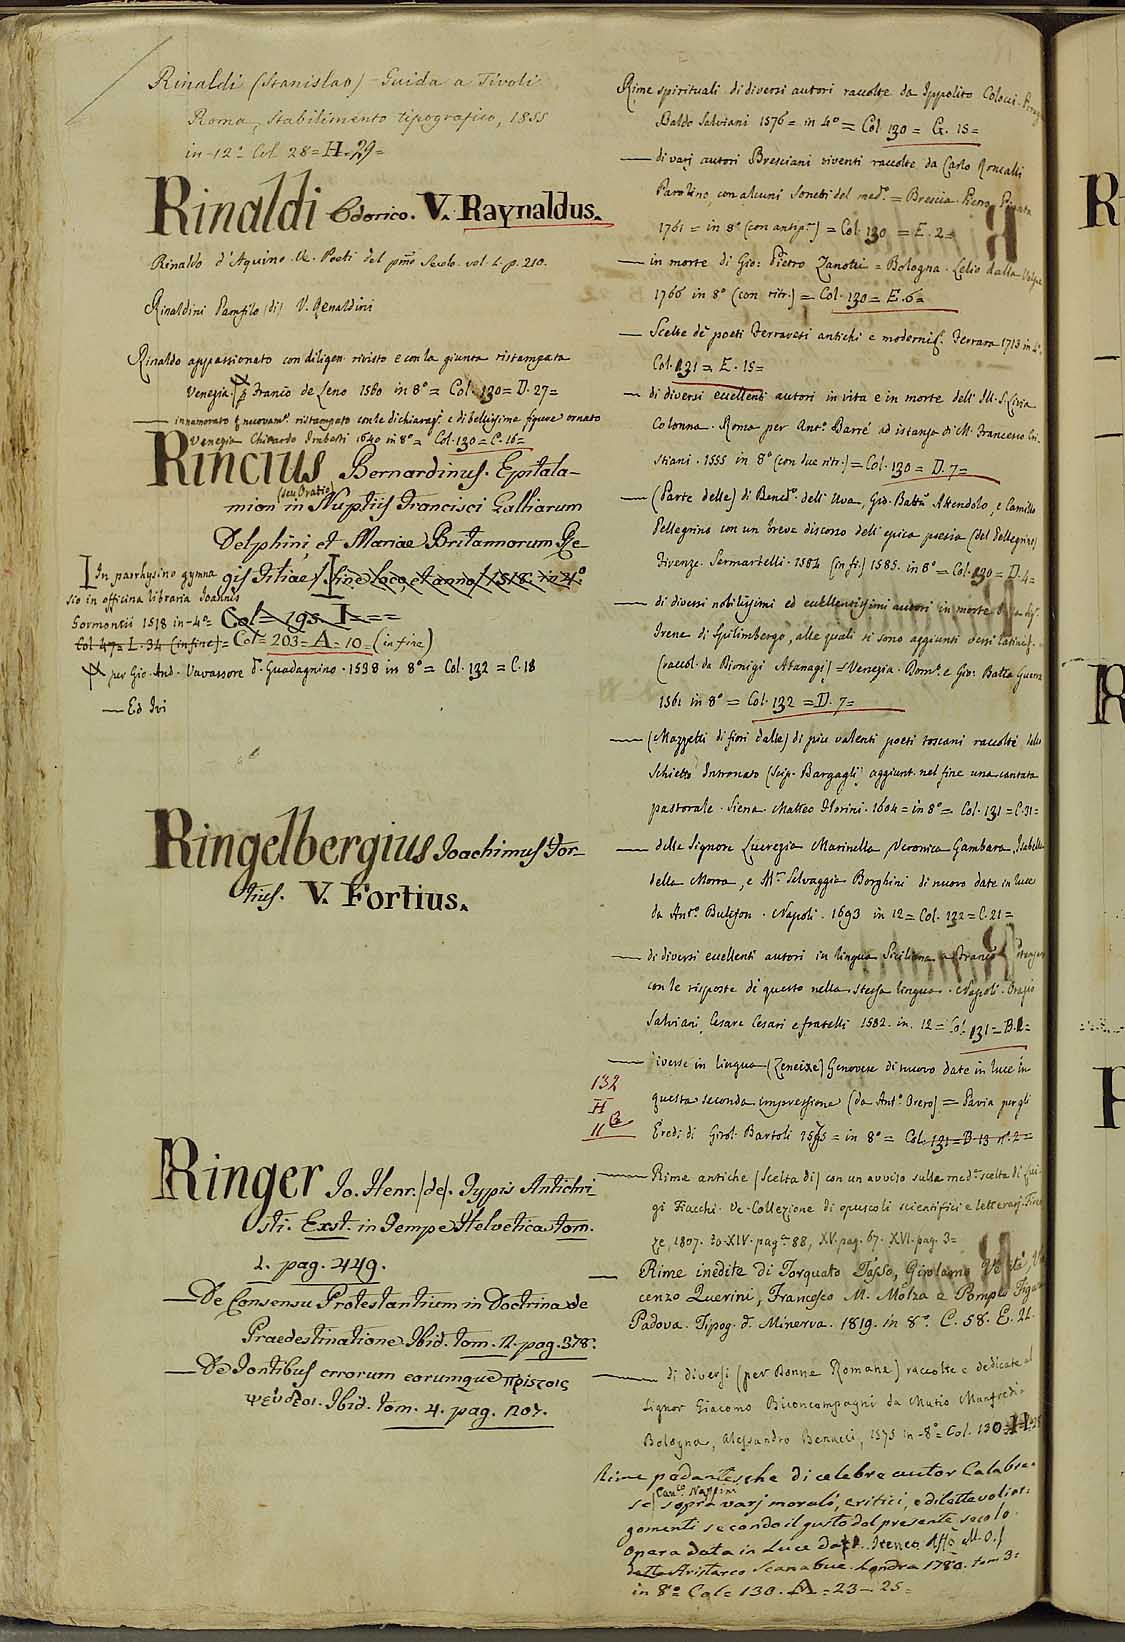 Rinaldi (Stanislao) - Guida a Tivoli
Roma, Stabilimento tipografico, 1855
in-12.º Col. 28 = H. 29 =
Rinaldi Odorico. V. Raynaldus.
Rinaldo d'Aquino. Ve. Poeti del pmo Secolo. vol. 1. p. 210.
Rinaldini Panfilo (di) V. Renaldini
Rinaldo appassionato con diligen. rivisto e con la giunta ristampata
Venezia. p Franco de Leno 1560 in 8º = Col. 130 = D. 27 =
— innamorato nuovam.e ristampato con le dichiaraz.i e di bellissime figure ornato
Venezia Ghirardo Imberti 1640 in 8º = Col. 130 = C. 16 =
Rincius Bernardinus. Epitala-
mion (seu Oratio) in Nuptiis Francisci Galliarum
Delphini, et Mariae Britannorum Re-
gis Filiae. sine loco, et anno 1518. in 4º
In parrhysino gymna
sio in officina libraria Joannis
Gormontii 1518 in-4º Col. 195. I =
Col 47 = L. 34 (in fine) = Col. 203 = A = 10 = (in fine)
per Gio. And. Vavassore d.º Guadagnino. 1538 in 8º = Col. 132 = C. 18
— Ed Ivi
Ringelbergius Joachimus For-
tius. V. Fortius.
Ringer Jo. Henr. (de). Typis Antichri
sti. Exst. in Tempe Helvetica tom.
2. pag. 449.
— De Consensu Protestantium in Doctrina de
Praedestinatione. Ibid. tom. 12. pag. 378.
— De Fontibus errorum eorumque πρίστοις
ψεύδεοι. Ibid. tom. 4. pag. 207.
Rime spirituali di diversi autori raccolte da Ippolito Colocci.
Baldo Salviani 1576 = in 4º = Col. 130 = G. 15 =
— di varj autori Bresciani viventi raccolte da Carlo Roncalli
Parolino, con alcuni Sonetti del med.º = Brescia. Pietro Pianta
1761 = in 8º (con antip.) = Col. 130 = E. 2 =
— in morte di Gio: Pietro Zanotti = Bologna. Lelio dalla Volpe
1766 in 8º (con ritr.) = Col. 130 = E. 6 =
— Scelte de' poeti Ferraresi antichi e moderni. Ferrara 1713 in 8º.
Col. 131 = E. 15 =
— di diversi eccellenti autori in vita e in morte dell' Ill. S. Livia
Colonna. Roma per Ant.º Barrè ad istanza di M. Francesco Cri-
stiani. 1555 in 8º (con due ritr.) = Col. 130 = D. 7 =
— (Parte delle) di Bened.º dell' Uva, Gio. Batta Attendolo, e Camillo
Pellegrino con un breve discorso dell' epica poesia (del Pellegrino)
Firenze. Sermartelli. 1584 (in fi:) 1585. in 8º = Col. 130 = D. 4 =
— di diversi nobilissimi ed eccellentissimi autori in morte
Irene di Spilimbergo, alle quali si sono aggiunti versi latini
(raccol. da Dionigi Atanagi) = Venezia. Dom.º e Gio: Batta Guerra
1561 in 8º = Col. 132 = D. 7 =
— (Mazzetti di fiori dalle) di più valenti poeti toscani raccolte dallo
Schietto Intronato (Scip. Bargagli) aggiunt. nel fine una cantata
pastorale. Siena. Matteo Florini. 1604 = in 8º = Col. 131 = C. 31 =
— delle Signore Lucrezia Marinella, Veronica Gambara, Isabella
della Morra, e M.ª Selvaggia Borghini di nuovo date in luce
da Ant.º Bulifon. Napoli. 1693 in 12 = Col. 132 = C. 21 =
— di diversi eccellenti autori in lingua Siciliana a Franco
con le risposte di questo nella stessa lingua. Napoli. Orazio
Salviani, Cesare Cesari e fratelli 1582. in. 12 = Col. 131 = B. 2 =
— diverse in lingua (Zeneixe) Genovese di nuovo date in luce in
questa seconda impressione (da Ant.º Orero) = Pavia per gli
Eredi di Girol. Bartoli 1595 = in 8º = Col. 131 = B. 13 nº 2 =
132
H
11
— Rime antiche (Scelta di) con un avviso sulla med.ª scelta di Lui-
gi Fiacchi. Ve. Collezione di opuscoli scientifici e letterarj. Firen
ze, 1807. To. XIV. pag.º 88, XV. pag. 67. XVI. pag. 3 =
— Rime inedite di Torquato Tasso, Girolamo Verità, Vin
cenzo Querini, Francesco M. Molza e Pompeo Figari
Padova. Tipog. d. Minerva. 1819. in 8º. C. 58. E. 21.
— di diversi (per Donne Romane) raccolte e dedicate al
Signor Giacomo Buoncompagni da Mutio Manfredi.
Bologna, Alessandro Benacci, 1575 in-8º = Col. 130 = H
Rime pedantesche di celebre autor Calabre-
se (Can.co Nappini) sopra varj morali, critici, e dilettevoli ar-
gomenti secondo il gusto del presente secolo.
Opera data in Luce da P. Ireneo Affò M. O.
detto Aristarco Scanabue. Londra 1780. tom 3:
in 8º Col = 130. A = 23 - 25 =